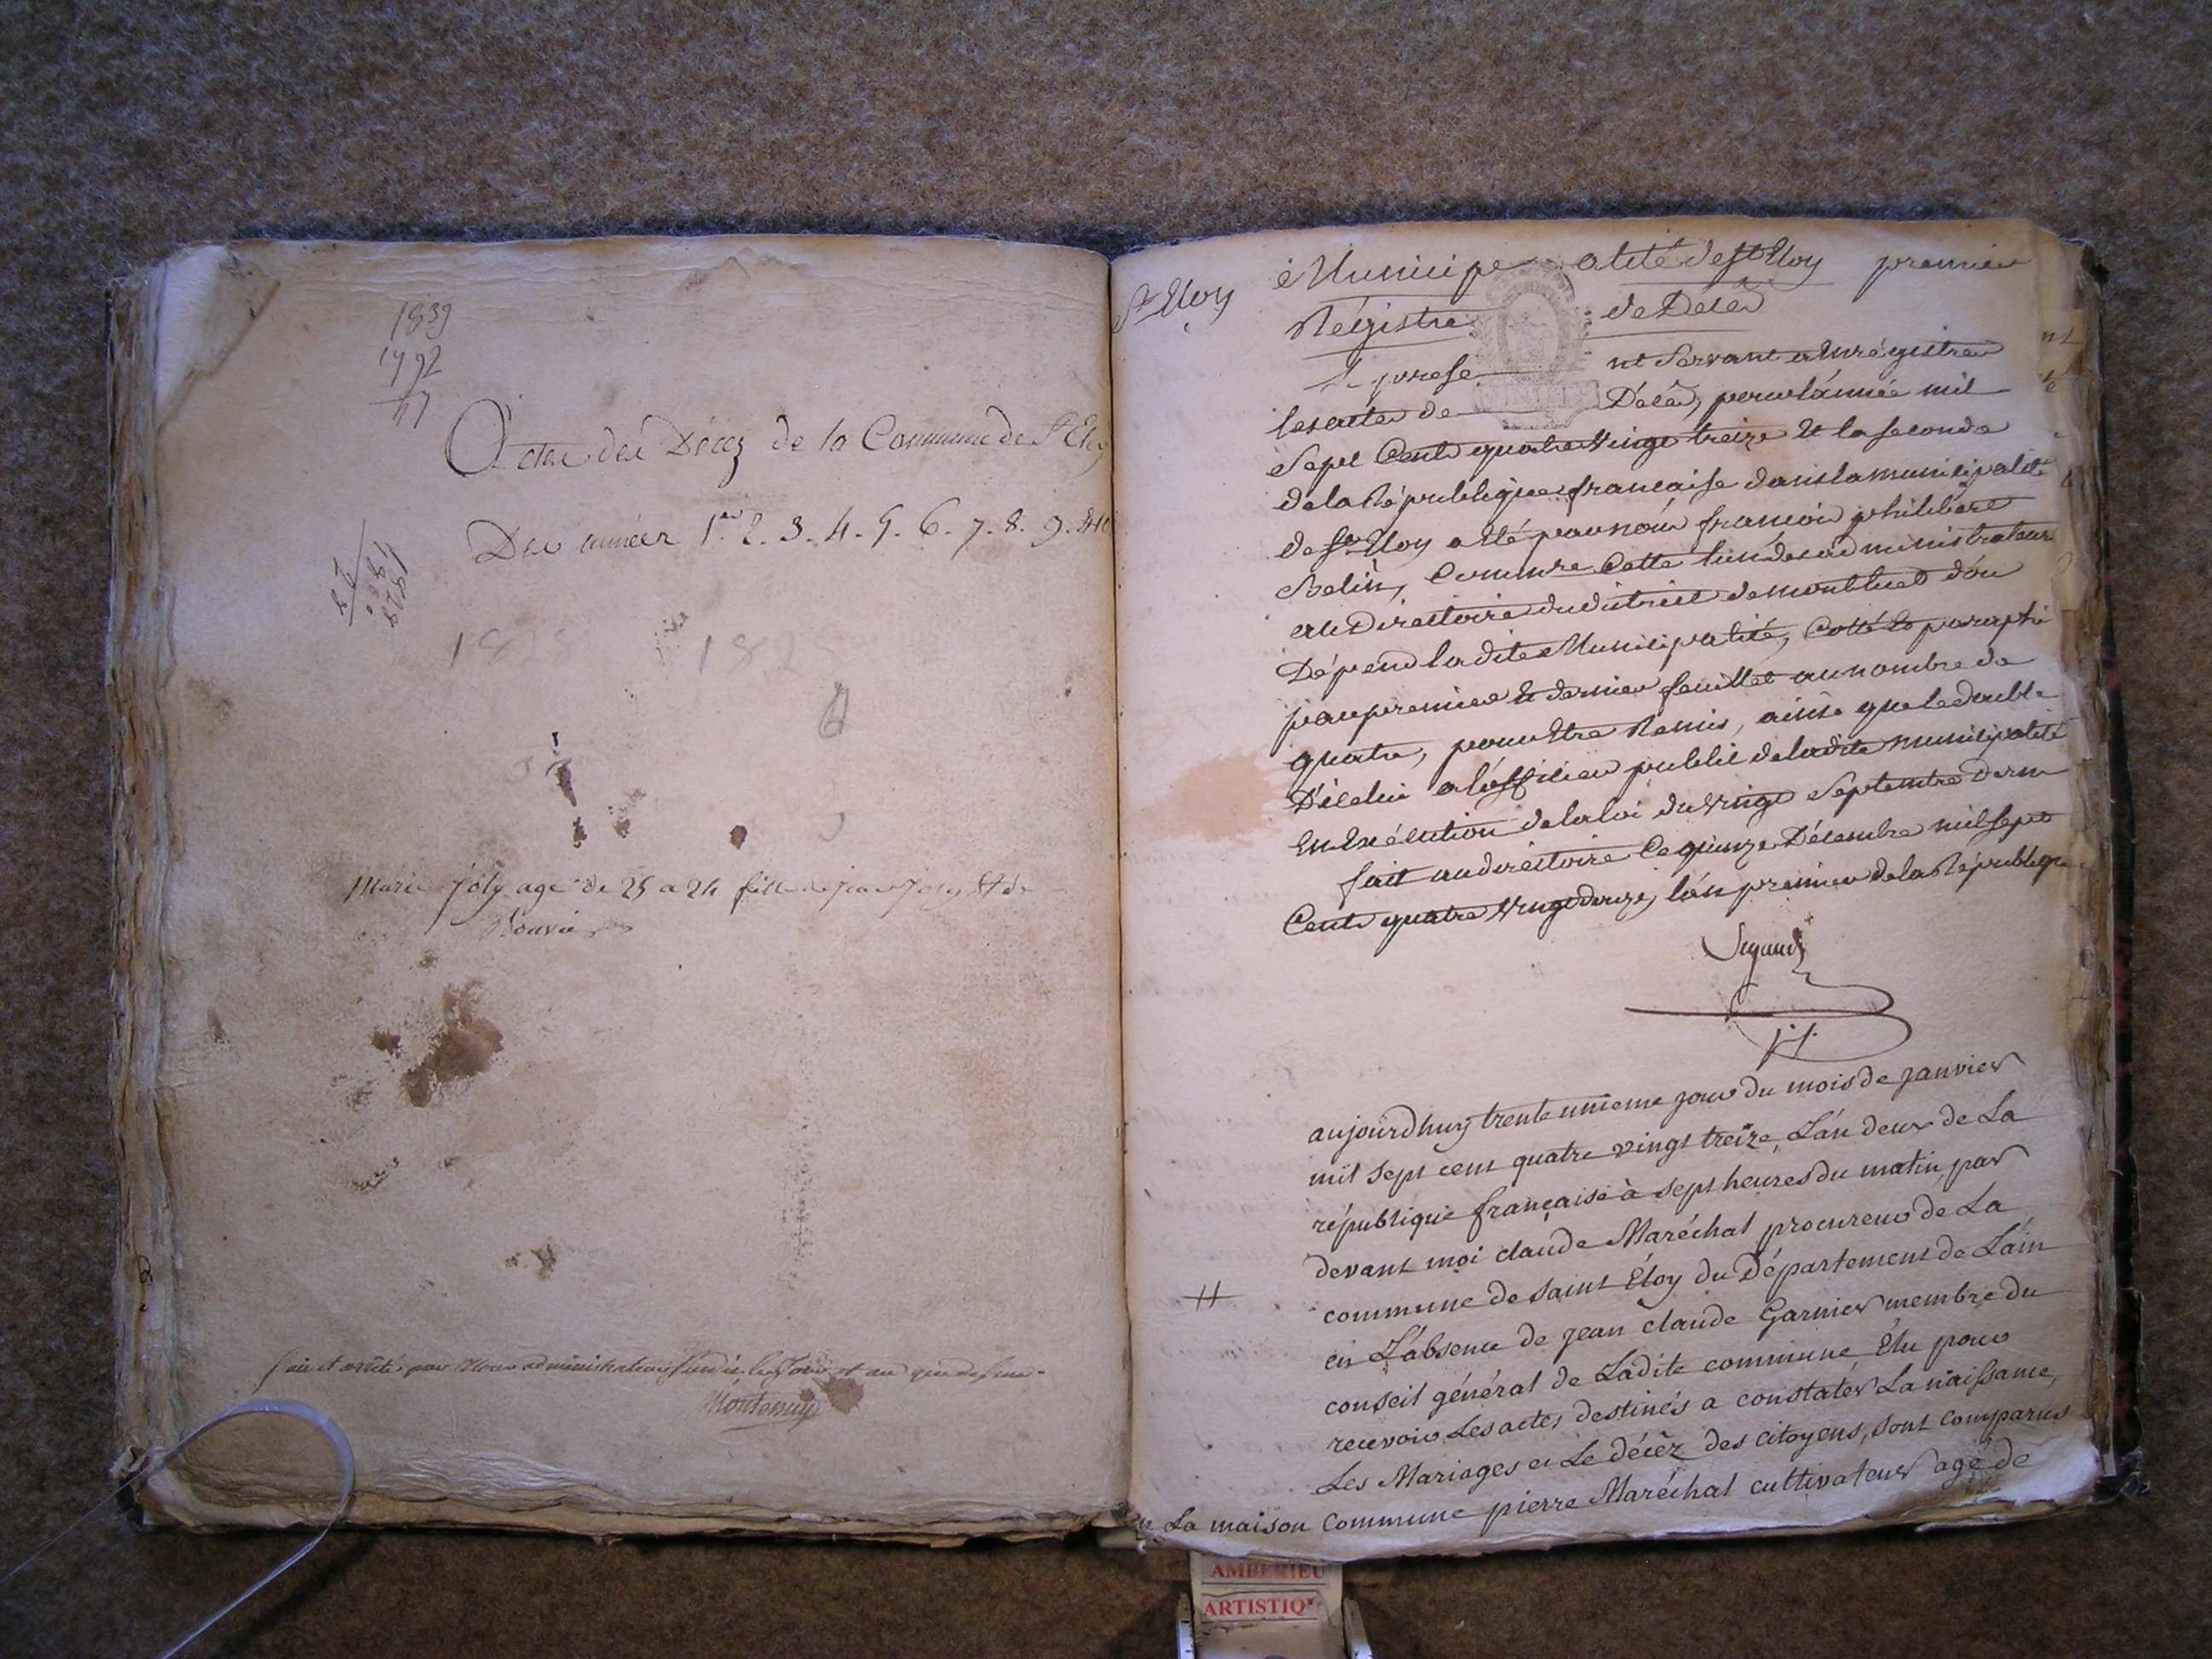 1839
1792
47
Actes des Décez de la Commune de St Eloy
Des années 1er 2. 3. 4. 5. 6. 7. 8. 9. et 10
1828
1828 182
Marie Joly agé de 25 a 24 fille de Jean Joly et de
Bouvier
fait et arrêté par Nous administrateur susdit, les jour et an que dessus.
Montenuy
St Eloy
Municipalité de St Eloy premier
Régistre de Décès
Le présent Servant a Enrégistrer
les actes de Décès, pour l'année mil
Sept Cents quatre Vingt treize Et la seconde
de la République francaise dans la municipalité
de St Eloy a été par nous francois philibert
Belin, Comme Cette l'un des administrateurs
au Directoire du district de montluel d'ou
Dépend la dite Municipalité, Cotté Et paraphé
par premier Et dernier feuillet au nombre de
quatre, pour Etre Remis, ainsi que le double
D'icelui a l'officier public de la dite municipalité
En Exécution de la loi du Vingt Septembre dern
fait au directoire Ce quinze Décembre mil sept
Cents quatre Vingt douze, l'an premier de la République
aujourdhuy trente unieme jour du mois de janvier
mil sept cent quatre vingt treize, L'an deux de La
république française à sept heures du matin par
devant moi claude Maréchal procureur de La
commune de saint Éloy du Département de L'ain
en L'absence de jean claude Garnier membre du
conseil général de Ladite commune Élu pour
recevoir Les actes destinés a constater La naissance,
Les Mariages et Le décèz des citoyens, sont comparus
en La maison Commune pierre Maréchal cultivateur agé de
AMBERIEU
ARTISTIQ